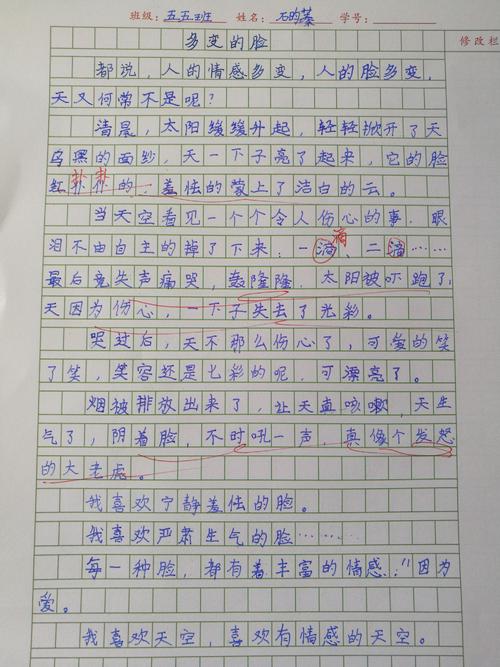 班级：五五班 姓名：石昀蓁 学号：
修改栏
多变的脸
都说，人的情感多变，人的脸多变，
天又何常不是呢？
清晨，太阳缓缓升起，轻轻掀开了天
乌黑的面纱，天一下子亮了起来，它的脸
扑扑
红扑扑的，羞怯的蒙上了洁白的云。
当天空看见一个个令人伤心的事，眼
滴
泪不由自主的掉了下来，一滴、二滴……
最后竟失声痛哭，轰隆隆，太阳被吓跑了，
天因为伤心，一下子失去了光彩。
哭过后，天不那么伤心了，可爱的笑
了笑，笑容还是七彩的呢，可漂亮了。
烟被排放出来了，让天真咳嗽，天生
气了，阴着脸，不时吼一声，真像个发怒
的大老虎。
我喜欢宁静羞怯的脸。
我喜欢严肃生气的脸……
每一种脸，都有着丰富的情感，“因为
爱。
我喜欢天空，喜欢有情感的天空。